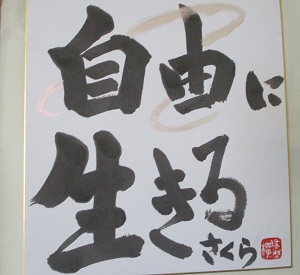 自由に
生きる
さくら